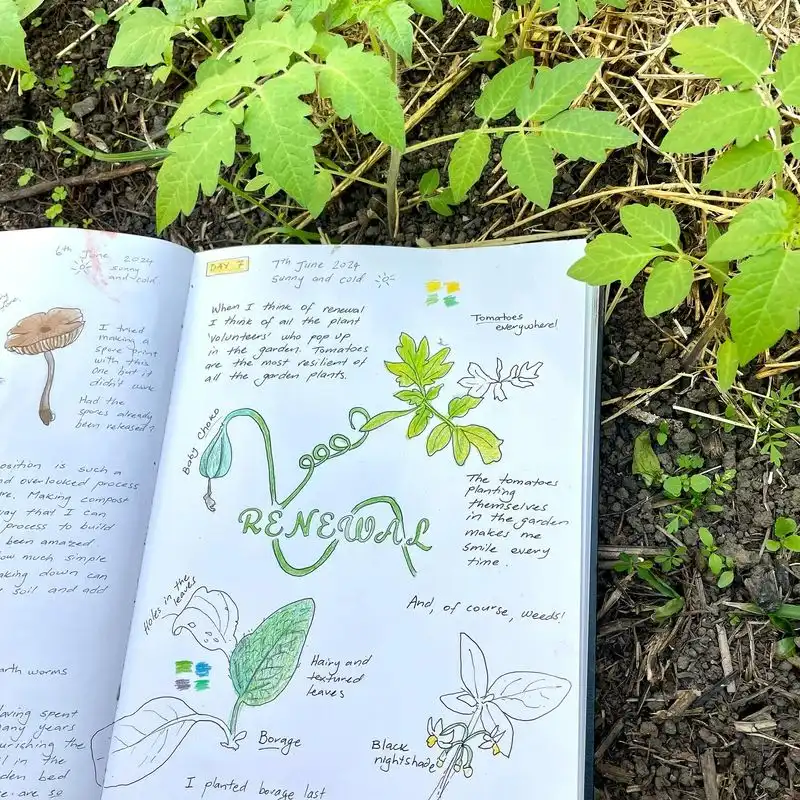 6th June 2024
sunny
and cold
I tried
making a
spore print
with this
one but it
didn't work
Had the
spores already
been released?
position is such a
overlooked process
Making compost
way that I can
process to build
been amazed.
how much simple
down can
soil and add
earth worms
having spent
many years
nourishing the
in the
garden bed
are so
DAY 7
7th June 2024
sunny and cold
When I think of renewal
I think of all the plant
'volunteers' who pop up
in the garden. Tomatoes
are the most resilient of
all the garden plants.
Tomatoes
everywhere!
Baby Choko
RENEWAL
The tomatoes
planting
themselves
in the garden
makes me
smile every
time.
Holes in the
leaves
And, of course, weeds!
Hairy and
textured
leaves
Borage
Black
nightshade
I planted borage last